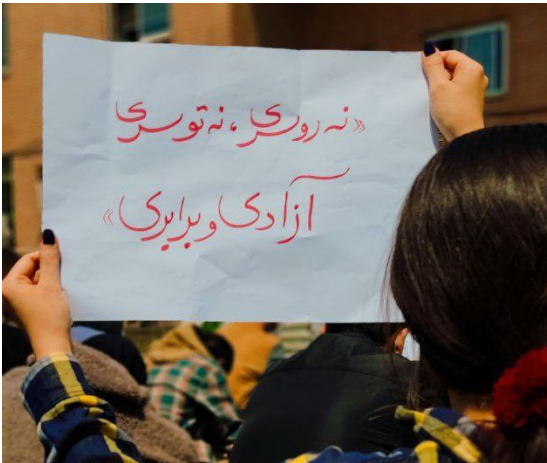 «نه روسری، نه توسری
آزادی و برابری»